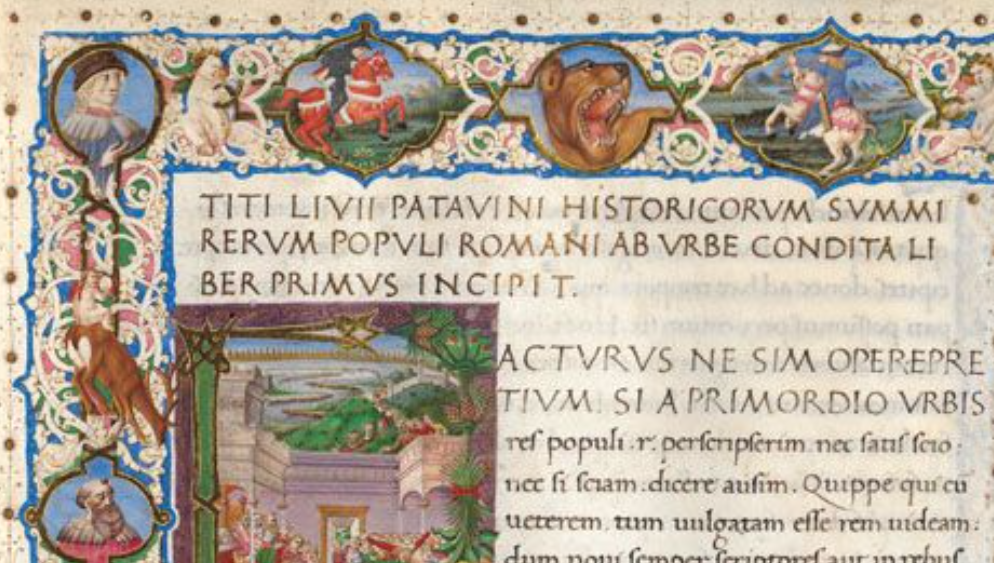 TITI LIVII PATAVINI HISTORICORVM SVMMI
RERVM POPVLI ROMANI AB VRBE CONDITA LI
BER PRIMVS INCIPIT.
FACTVRVS NE SIM OPEREPRE
TIVM SI A PRIMORDIO VRBIS
res populi .r. perscripserim nec satis scio.
nec si sciam .dicere ausim. Quippe qui cū
ueterem tum uulgatam esse rem uideam:
dum noui semper scriptores aut in rebus